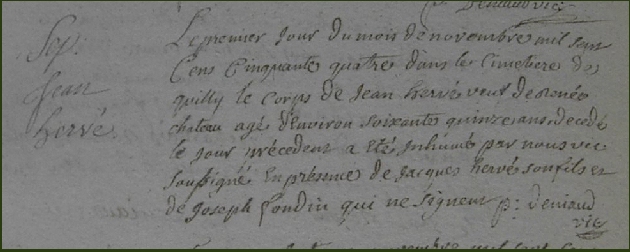 Sep.
Jean
hervé
Le premier jour du mois de novembre mil sept
Cens Cinquante quatre dans le Cimetiere de
quilly le corps de Jean hervé veuf de renée
chateau agé d'environ soixante quinze ans decedé
le jour précédent a été inhumé par nous vic
soussigné En présence de Jacques hervé son fils et
de Joseph Gondin qui ne signent p: deniaud
vic